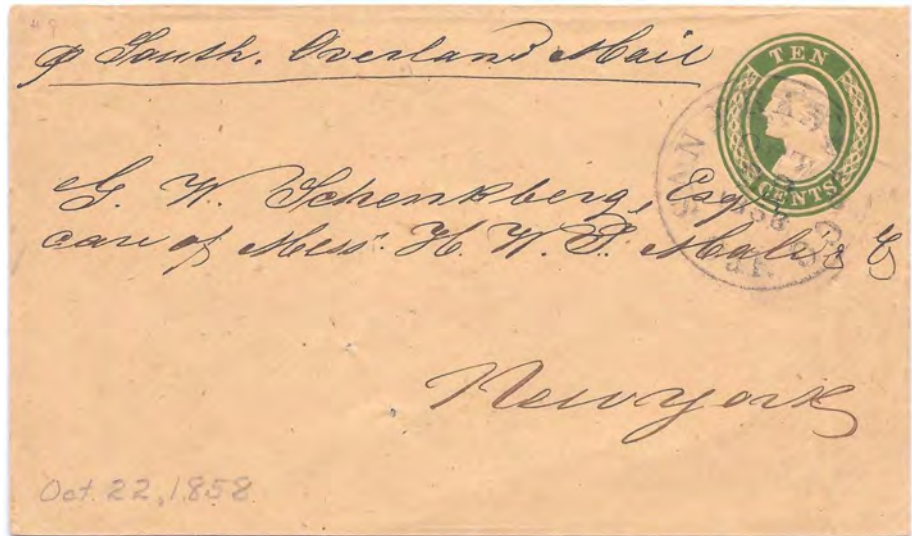 p South. Overland Mail
TEN
CENTS
SAN
G. W. Schenkberg, Esq
care of Mess. H. W. T. Mali &
New york
Oct. 22, 1858